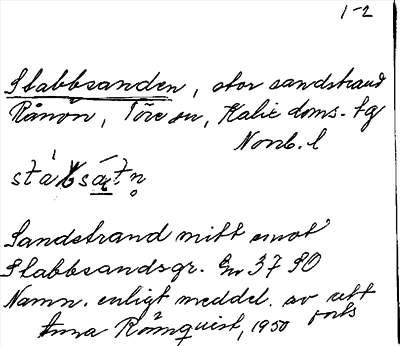 1-2
Stabbsanden, stor sandstrand
Rånön, Töre sn, Kalix doms. tg
Norrb. l
Sandstrand mitt emot
Stabbsandsgr. Gr 37 SO
Namn. enligt meddel. av utt
Anna Römquist, 1950 forts